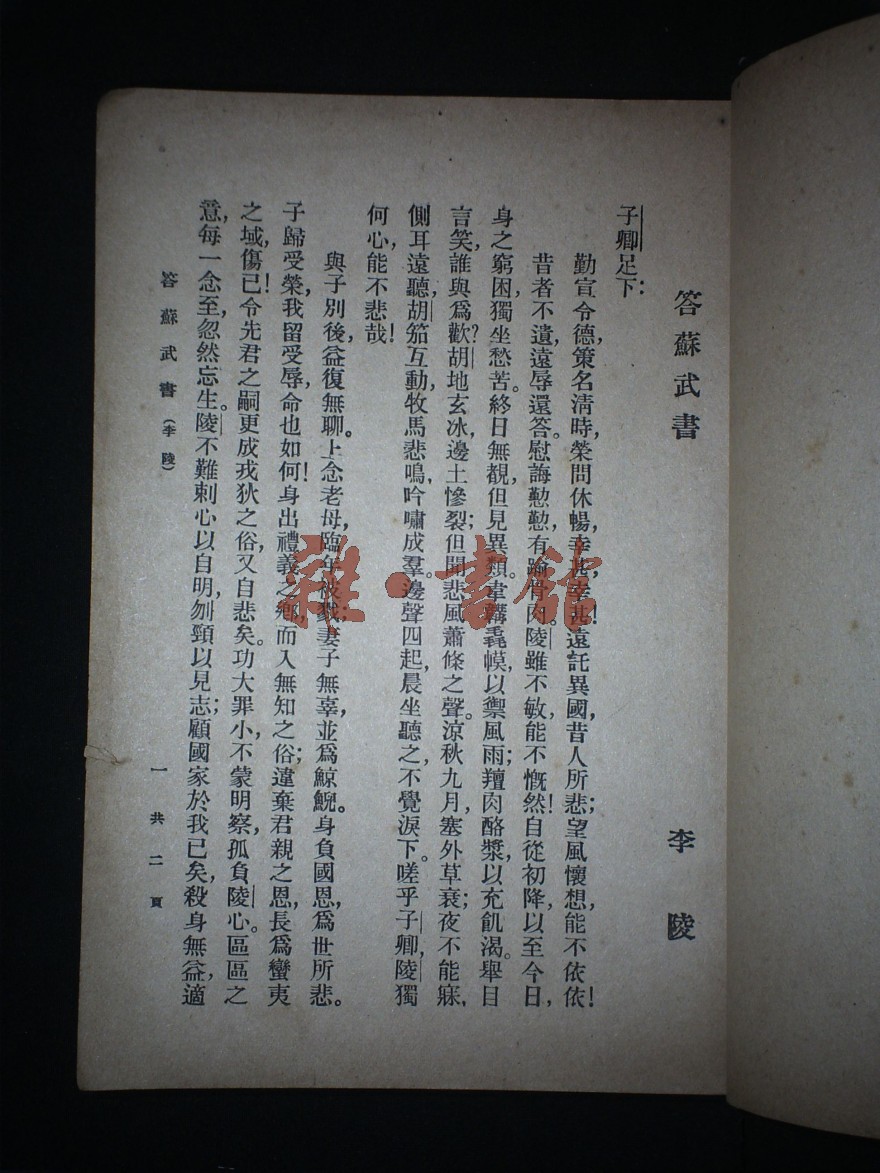 答蘇武書 李陵
子卿足下：
勤宣令德，策名清時，榮問休暢，幸甚，幸甚！遠託異國，昔人所悲；望風懷想，能不依依！
昔者不遺，遠辱還答。慰誨懃懃，有踰骨肉。陵雖不敏，能不慨然！自從初降，以至今日，
身之窮困，獨坐愁苦。終日無覩，但見異類。韋韝毳幙，以禦風雨；羶肉酪漿，以充飢渴。舉目
言笑，誰與爲歡？胡地玄冰，邊土慘裂；但聞悲風蕭條之聲。涼秋九月，塞外草衰；夜不能寐，
側耳遠聽，胡笳互動，牧馬悲鳴，吟嘯成羣。邊聲四起，晨坐聽之，不覺淚下。嗟乎子卿，陵獨
何心，能不悲哉！
與子別後，益復無聊。上念老母，臨年被戮；妻子無辜，並爲鯨鯢。身負國恩，爲世所悲。
子歸受榮，我留受辱，命也如何！身出禮義之鄉，而入無知之俗；違棄君親之恩，長爲蠻夷
之域，傷已！令先君之嗣，更成戎狄之俗，又自悲矣。功大罪小，不蒙明察，孤負陵心。區區之
意，每一念至，忽然忘生。陵不難刺心以自明，刎頸以見志；顧國家於我已矣，殺身無益，適
答蘇武書（李陵） 一 共二頁
雜·書館